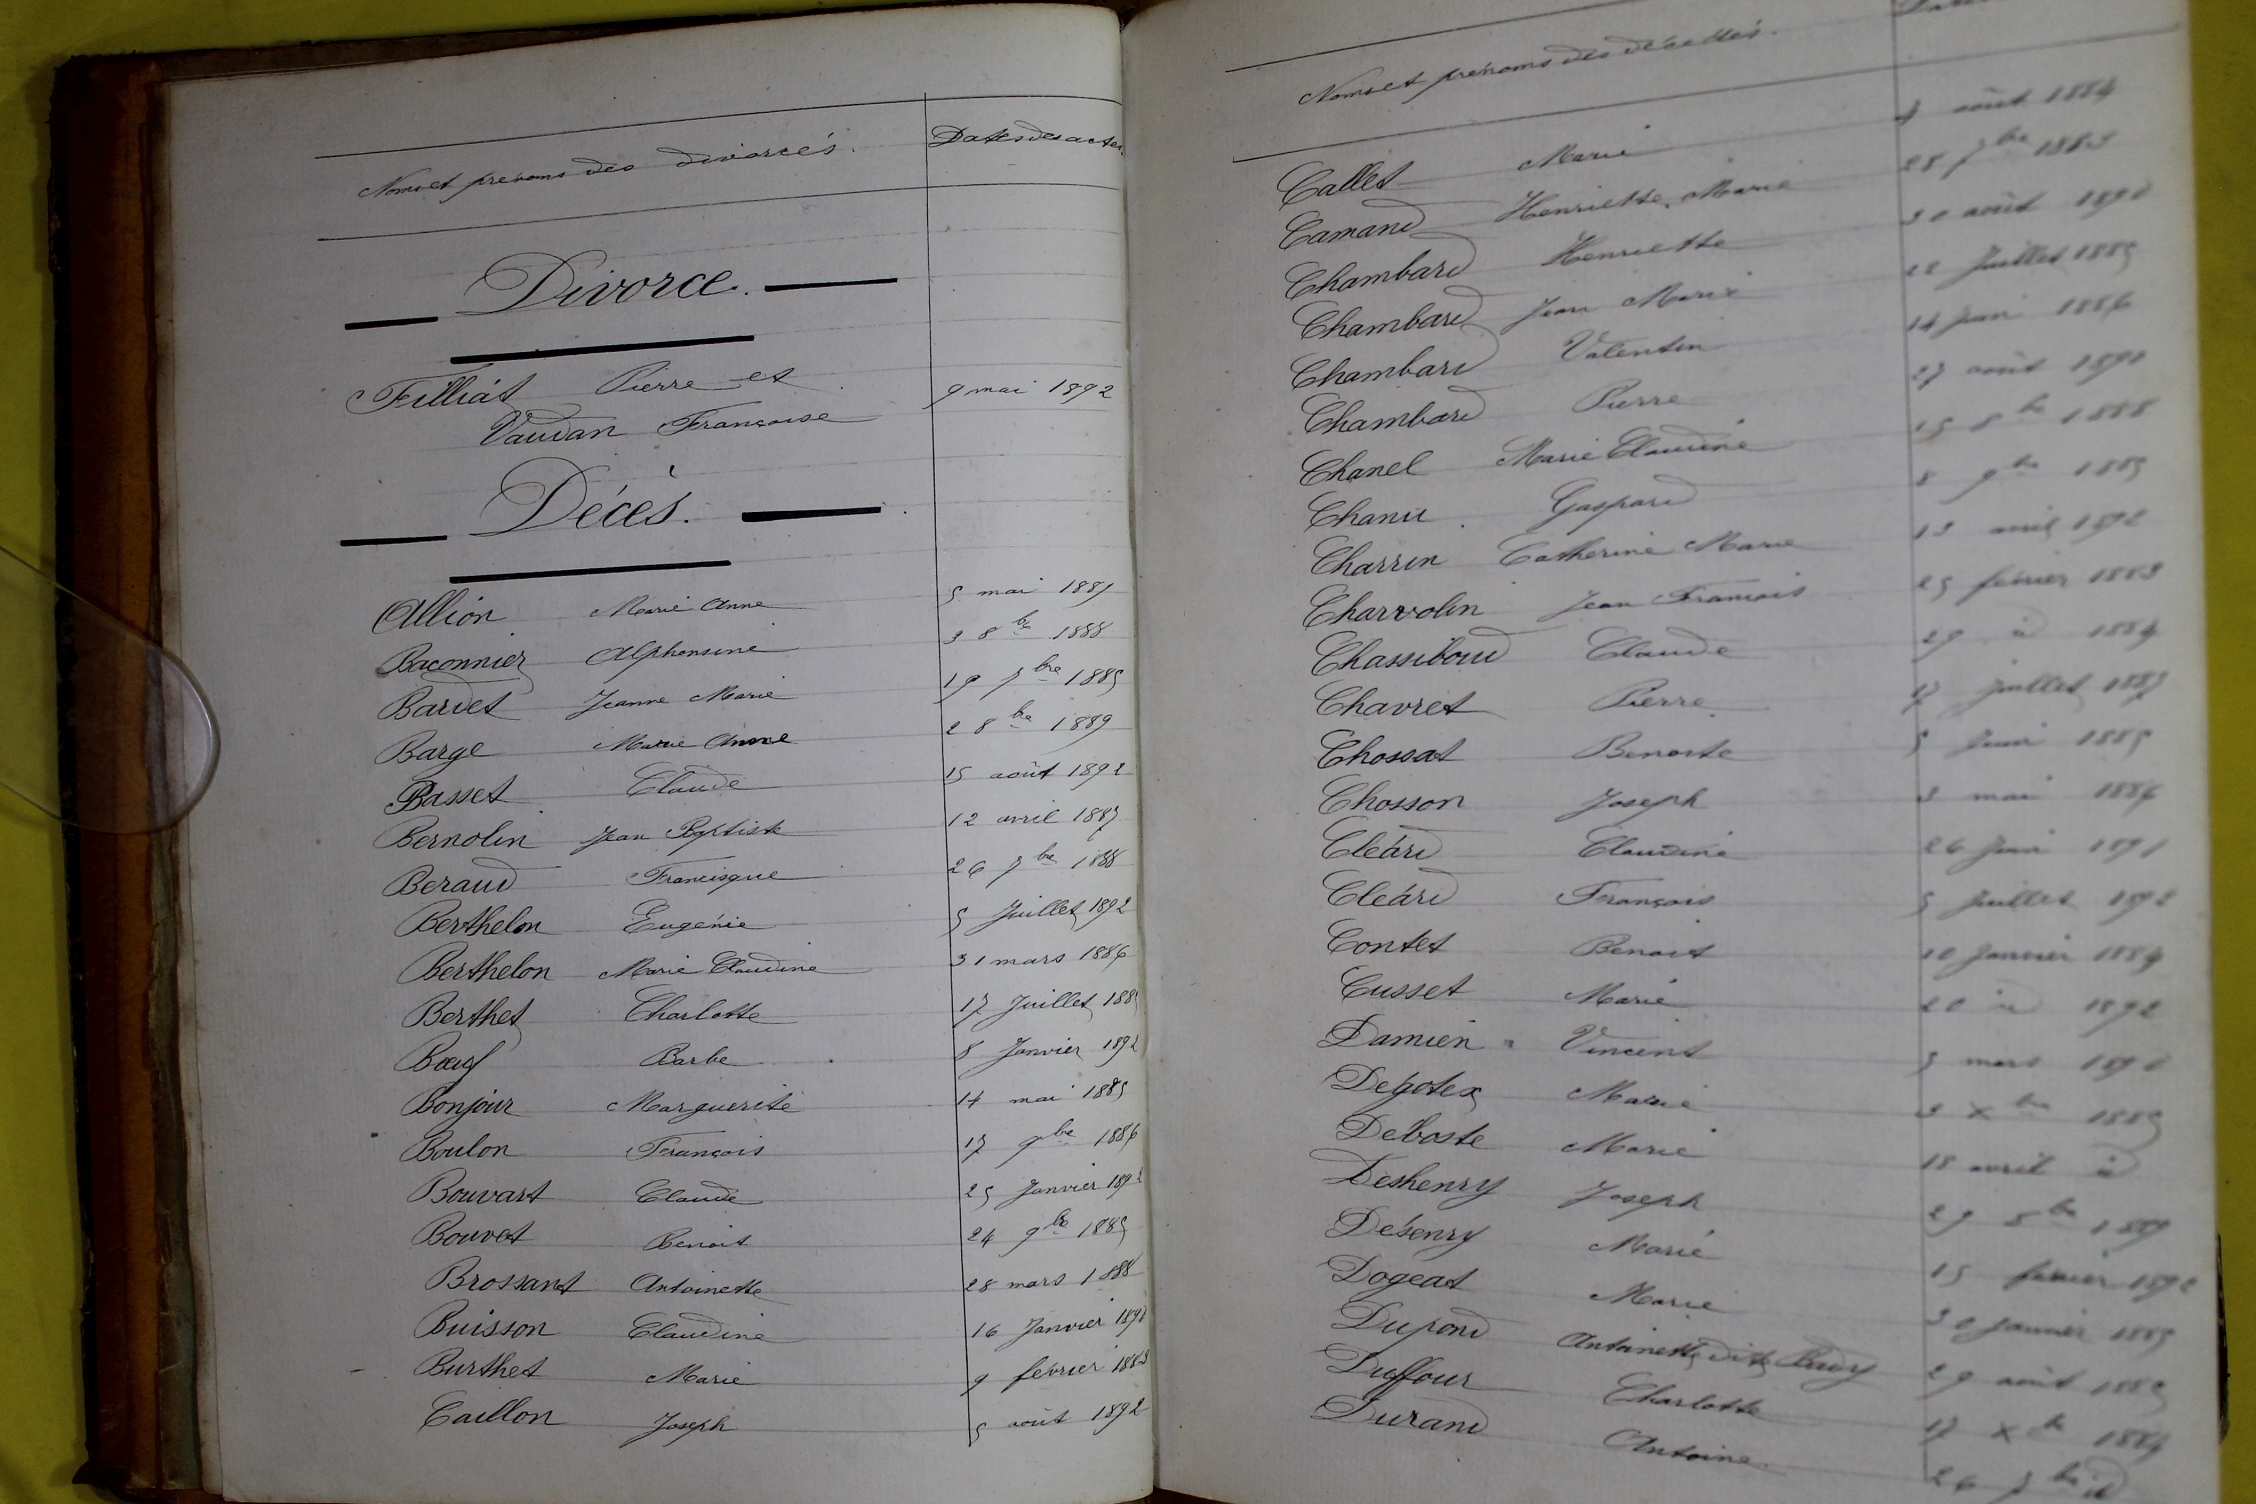 Noms et prénoms des divorcés. Dates des actes.
Divorce.
Filliat Pierre et
Vaudan Françoise 9 mai 1892
Décès.
Allion Marie Anne 5 mai 1885
Baconnier Alphonsine 3 8bre 1888
Bardet Jeanne Marie 19 7bre 1885
Barge Marie Anne 2 8bre 1889
Basset Claude 15 août 1892
Bernolin Jean Baptiste 12 avril 1887
Beraud Francisque 26 7bre 1888
Berthelon Eugénie 5 Juillet 1892
Berthelon Marie Claudine 31 mars 1886
Berthet Charlotte 17 Juillet 1885
Bœuf Barbe 8 Janvier 1892
Bonjour Marguerite 14 mai 1885
Boulon François 17 9bre 1886
Bouvart Claude 25 Janvier 1892
Bouvet Benoit 24 9bre 1885
Brossand Antoinette 28 mars 1888
Buisson Claudine 16 Janvier 1890
Burthet Marie 9 février 1883
Caillon Joseph 5 août 1892
Noms et prénoms des décédés.
Callet Marie août 1884
Camand Henriette Marie 28 7bre 1883
Chambard Henriette 30 août 1890
Chambard Jean Marie 22 Juillet 1885
Chambard Valentin 14 Juin 1886
Chambard Pierre 27 août 1890
Chanel Marie Claudine 15 8bre 1888
Chanu Gaspard 8 9bre 1885
Charrin Catherine Marie 13 avril 1892
Charvolin Jean François 25 février 1883
Chassiboud Claude 29 id 1884
Chavret Pierre 17 Juillet 1887
Chossat Benoite 5 Juin 1885
Chosson Joseph 3 mai 1886
Cléard Claudine 26 Juin 1891
Cléard François 5 Juillet 1892
Contet Benoit 10 Janvier 1884
Cusset Marie 20 id 1892
Damien Vincent 5 mars 1890
Dégotex Marie 3 Xbre 1885
Déboste Marie 18 avril id
Deshenry Joseph 29 8bre 1889
Désenry Marie 15 février 1892
Dogeat Marie 30 Janvier 1885
Dupond Antoinette dite 29 août 1885
Duffour Charlotte 17 Xbre 1884
Durand Antoine 26 7bre id